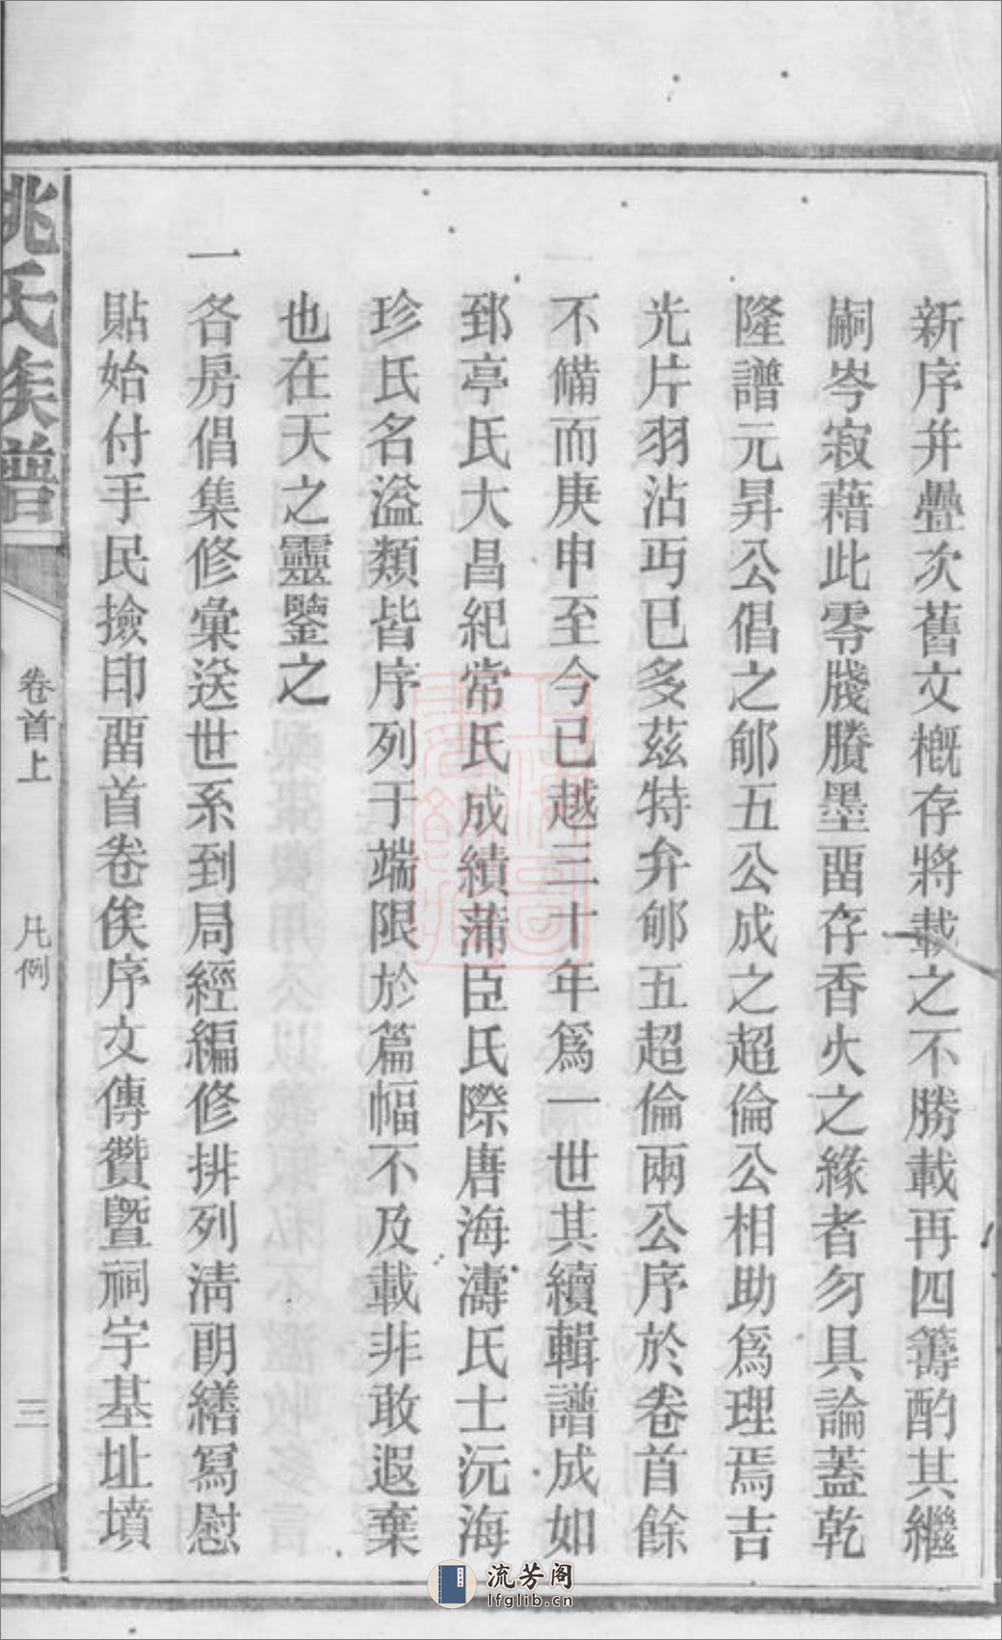 新序并疊次舊文概存將載之不勝載再四籌酌其繼
嗣岑寂藉此零牋賸墨畱存香火之緣者勿具論蓋乾
隆譜元昇公倡之郇五公成之超倫公相助爲理焉吉
光片羽沾丐已多茲特弁郇五超倫兩公序於卷首餘
不備而庚申至今已越三十年爲一世其續輯譜成如
郅亭氏大昌紀常氏成績蒲臣氏際唐海濤氏士沅海
珍氏名溢類皆序列于端限於篇幅不及載非敢遐棄
也在天之靈鑒之
一各房倡集修彙送世系到局經編修排列淸朗繕寫慰
貼始付手民撿印畱首卷俟序文傳贊曁祠宇基址墳
姚氏族譜
卷首上
凡例
三
流芳阁
lfglib.cn